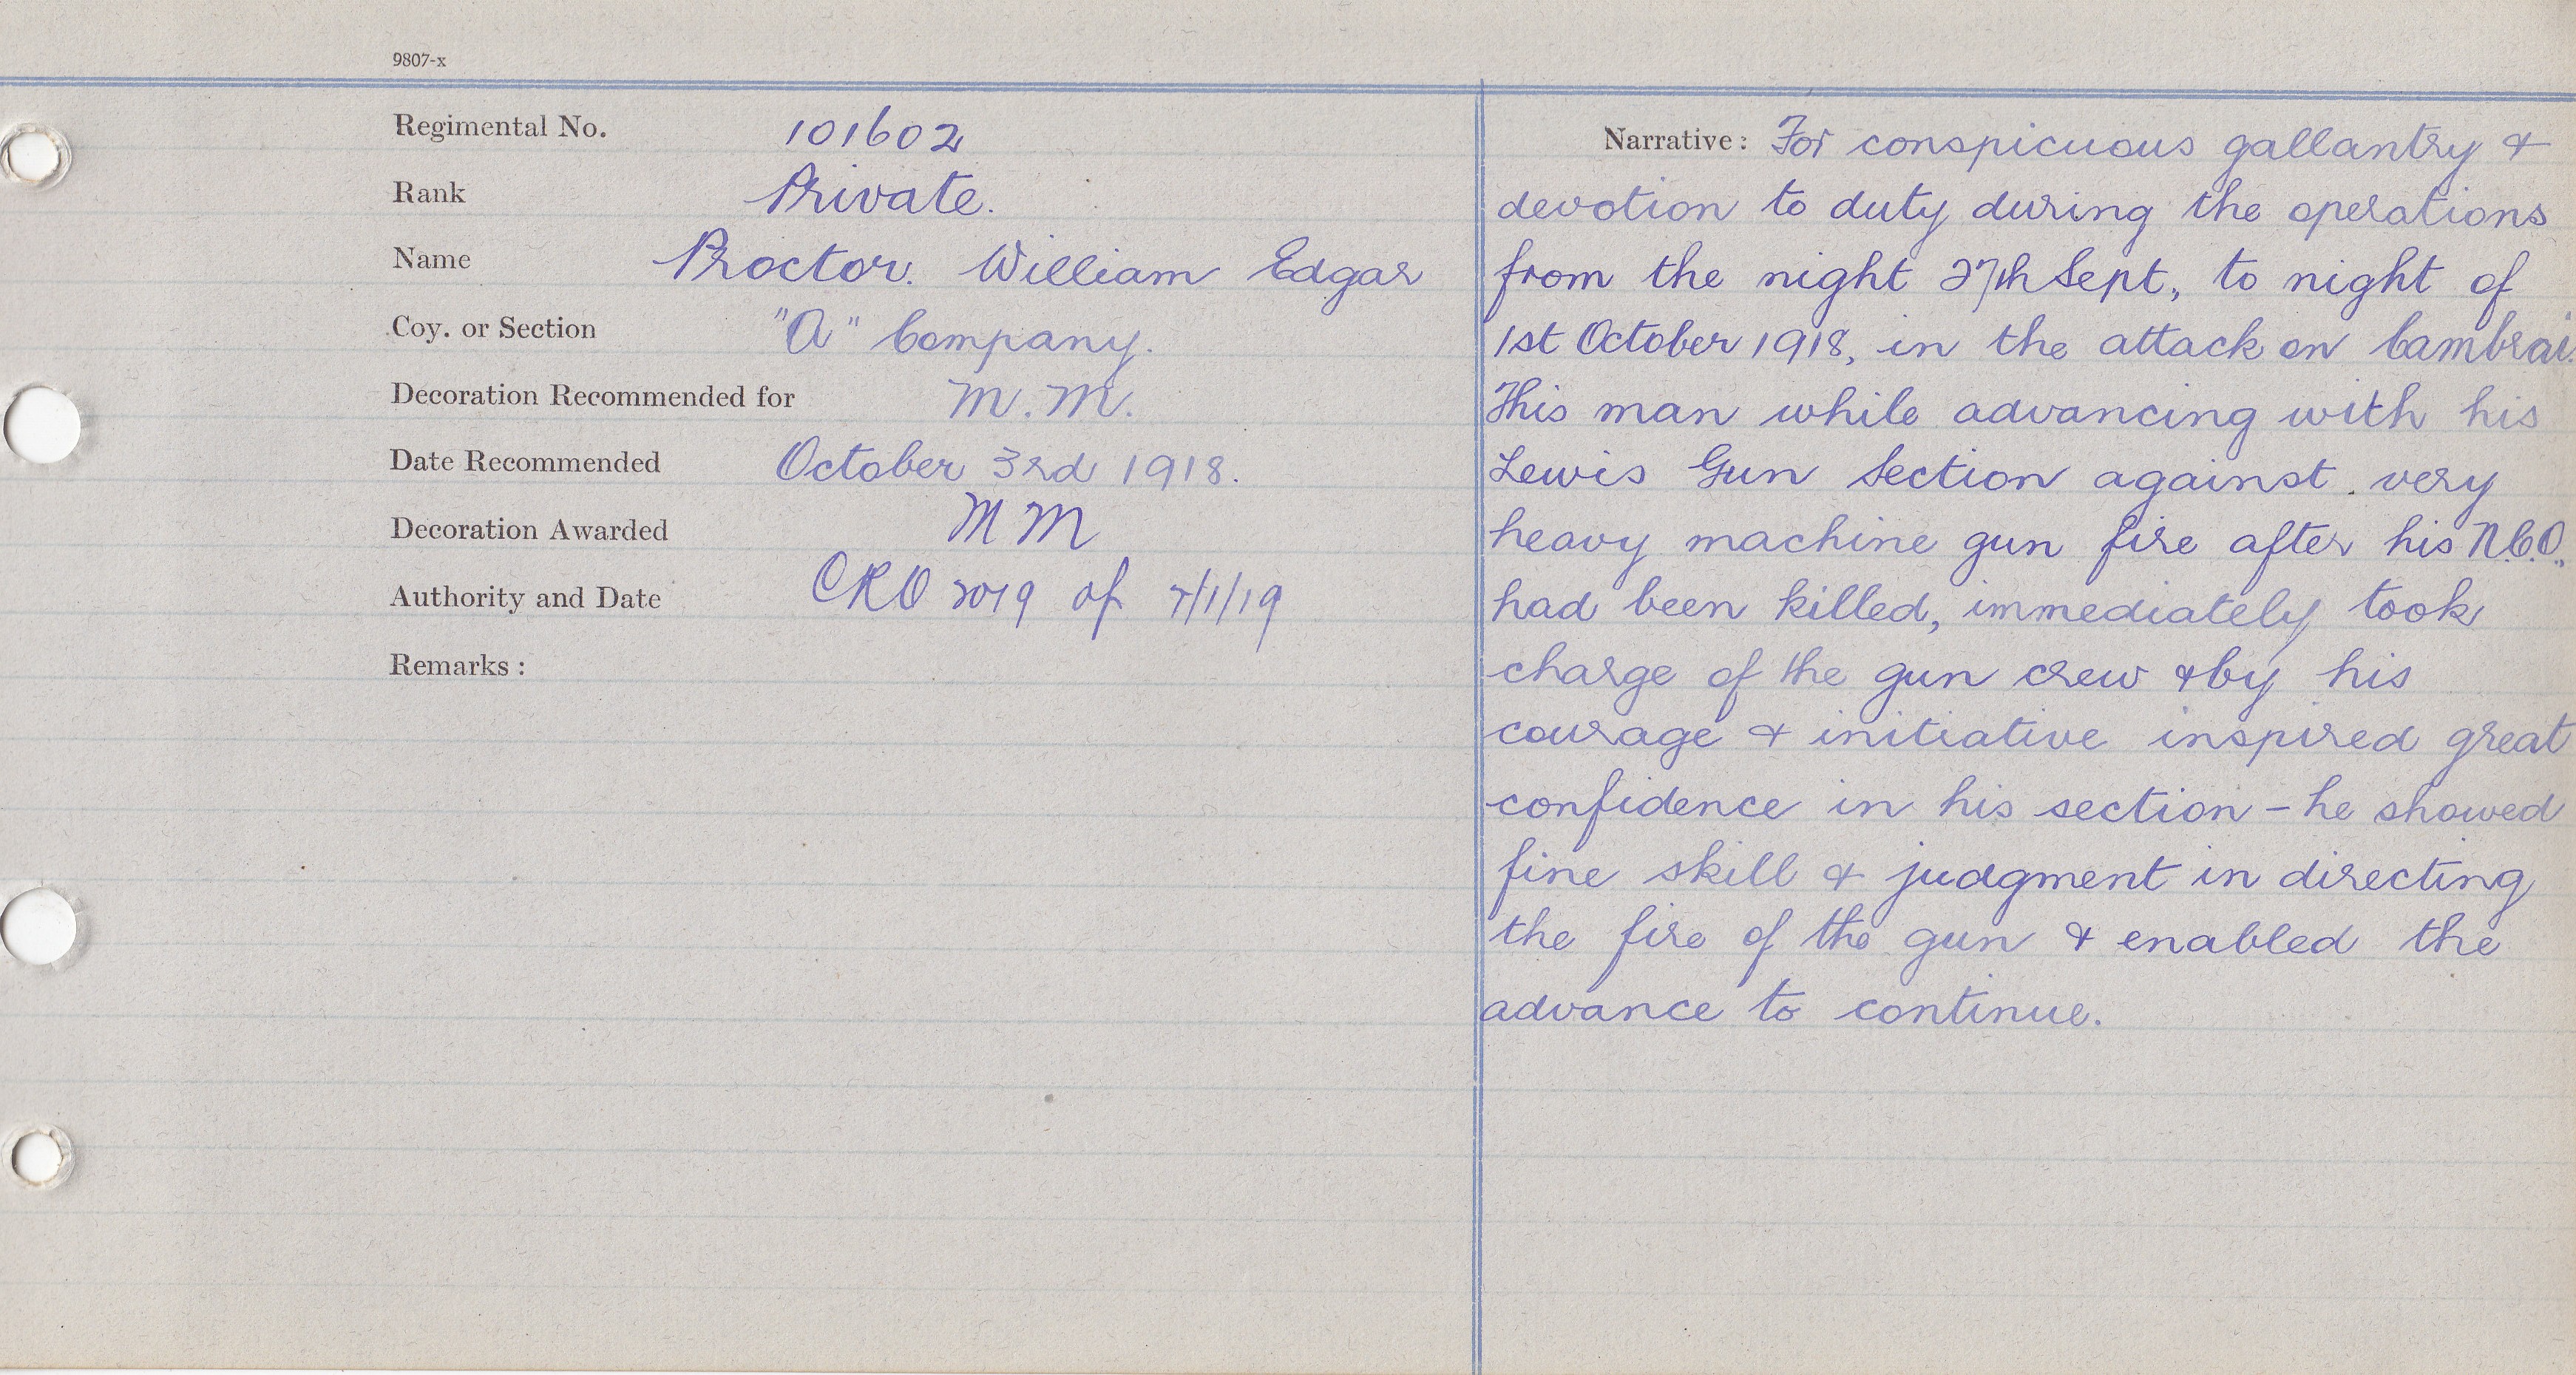 9807-x
Regimental No. 101602
Rank Private.
Name Proctor. William Edgar
Coy. or Section "A" Company.
Decoration Recommended for M.M.
Date Recommended October 3rd 1918.
Decoration Awarded MM
Authority and Date CRO of
Remarks :
Narrative : For conspicuous gallantry &
devotion to duty during the operations
from the night 27th Sept, to night of
1st October 1918, in the attack on Cambrai.
This man while advancing with his
Lewis Gun Section against very
heavy machine gun fire after his N.C.O.,
had been killed, immediately took
charge of the gun crew & by his
courage & initiative inspired great
confidence in his section – he showed
fine skill & judgment in directing
the fire of the gun & enabled the
advance to continue.